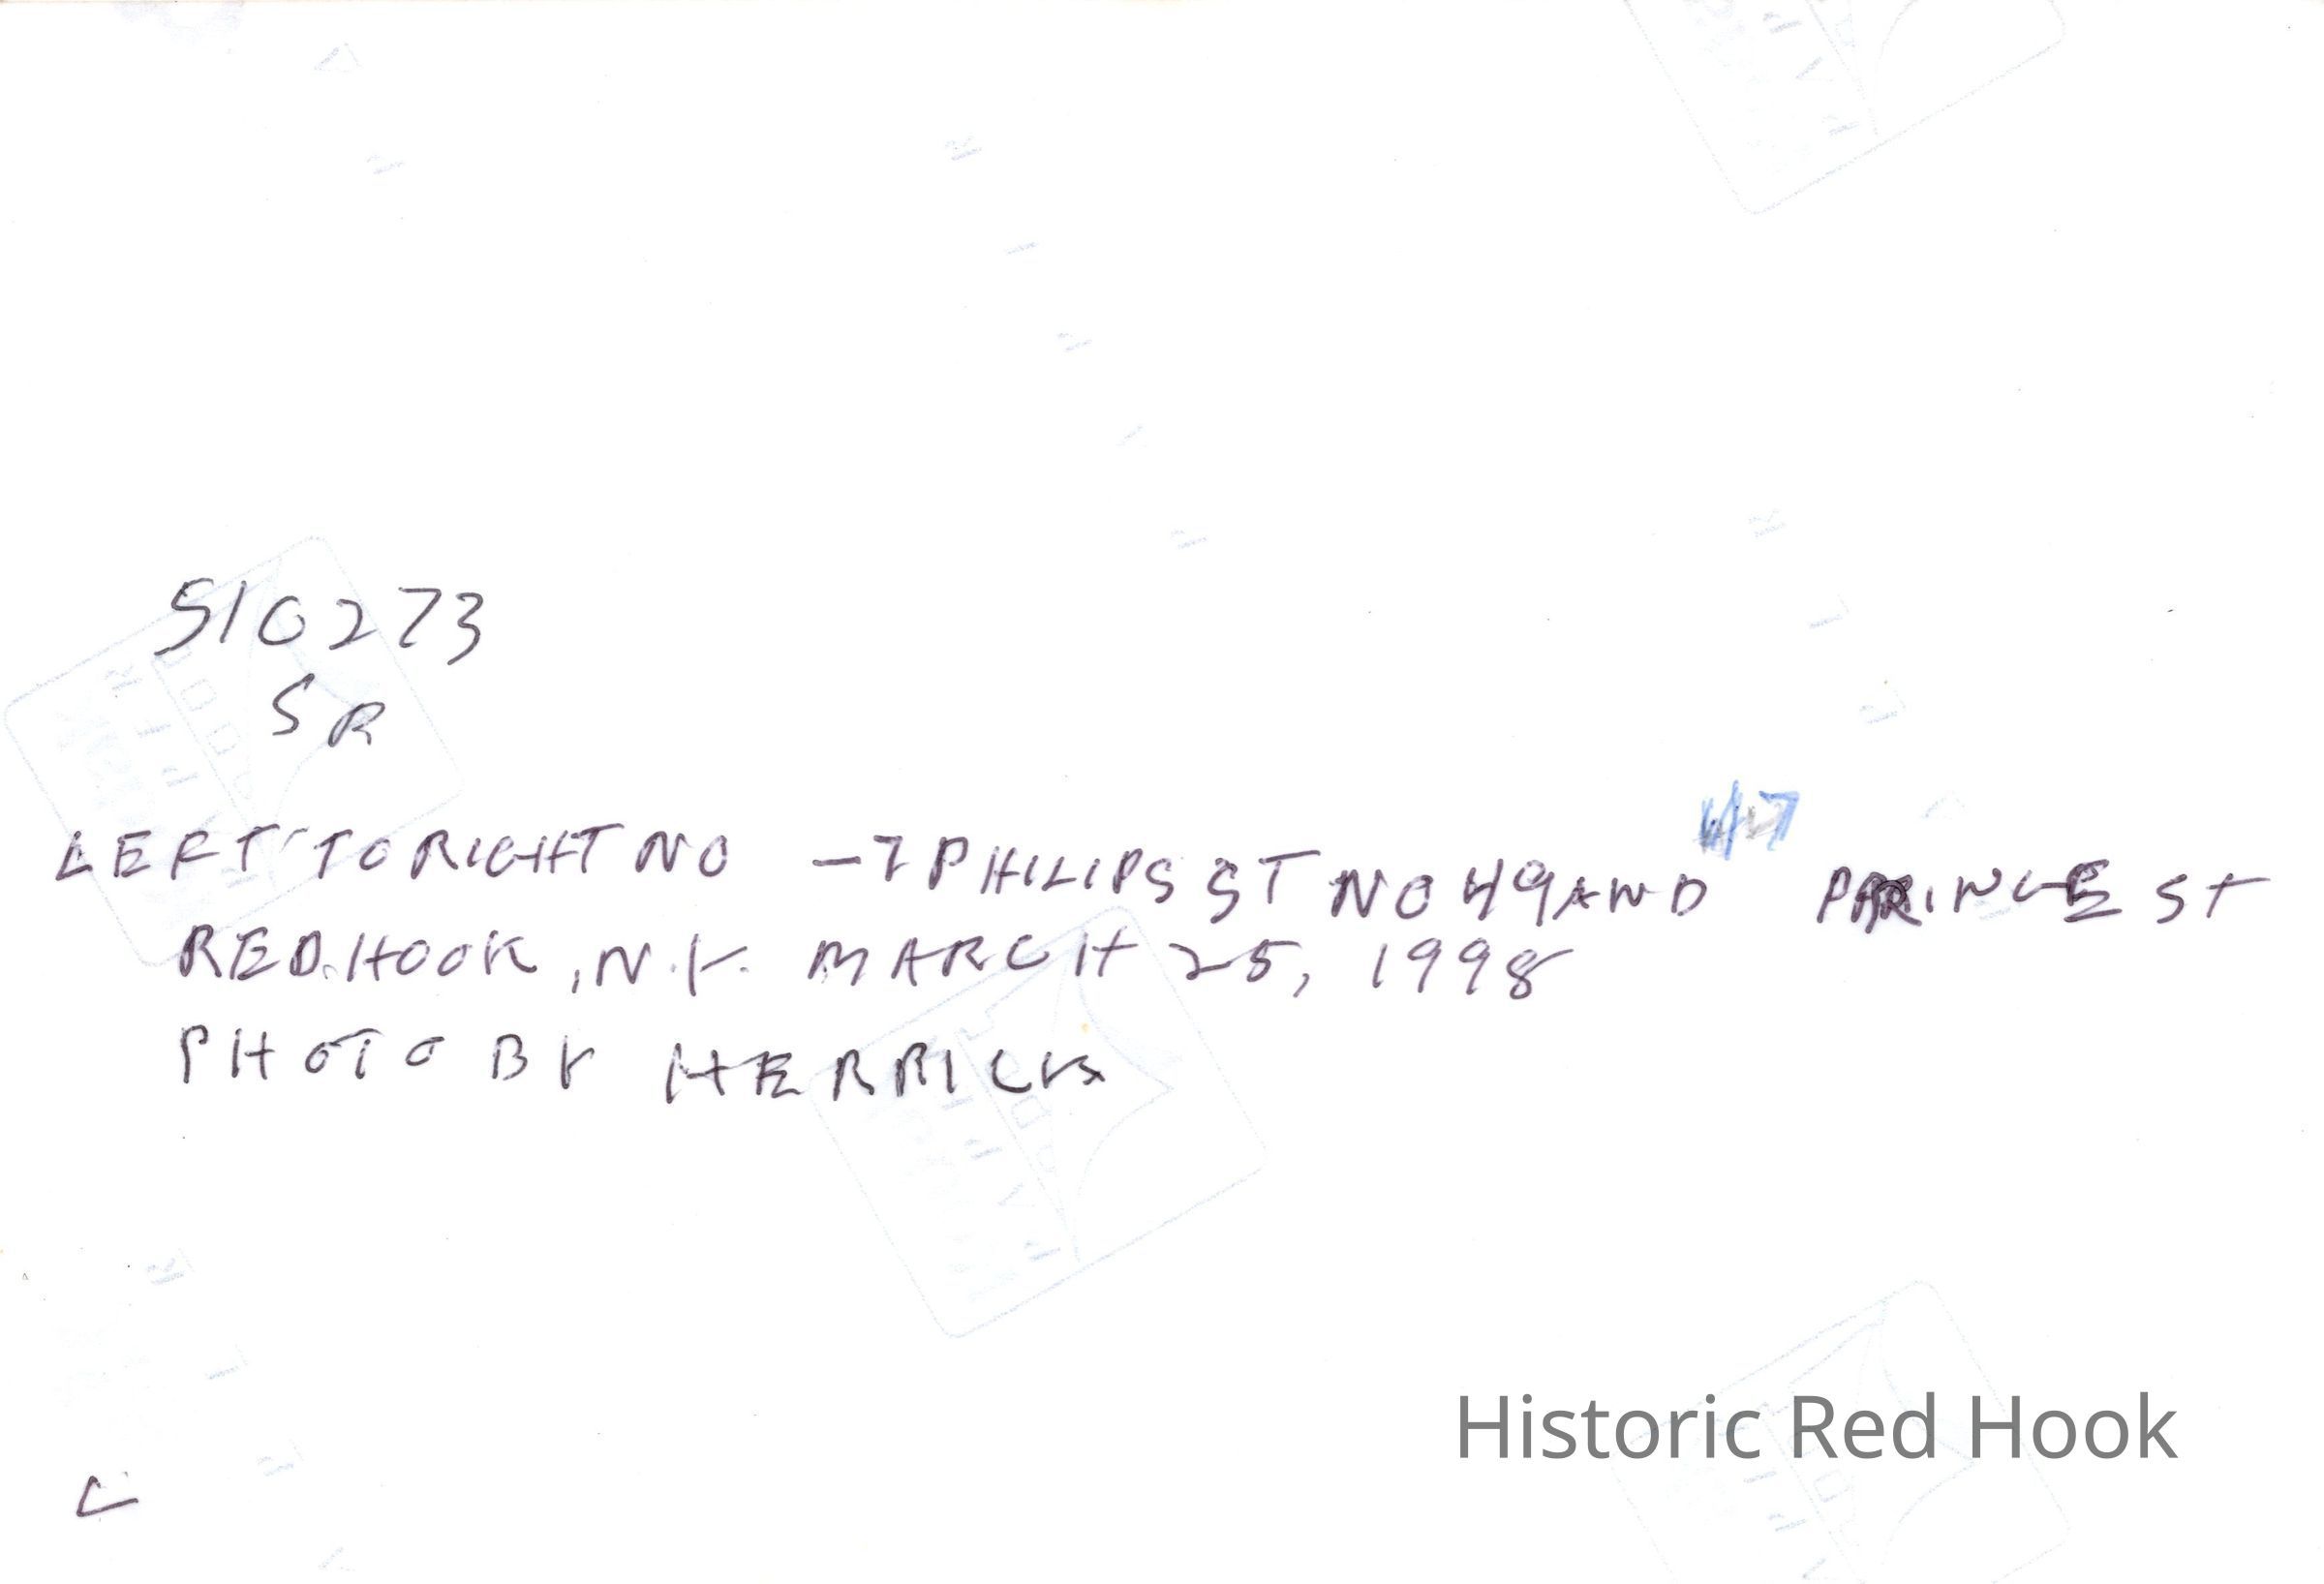 510273
SR
LEFT TO RIGHT NO -7 PHILIPS ST NO 49 AND 47 PRINCE ST
RED HOOK, N.Y. MARCH 25, 1998
PHOTO BY HERRICK
L
Historic Red Hook